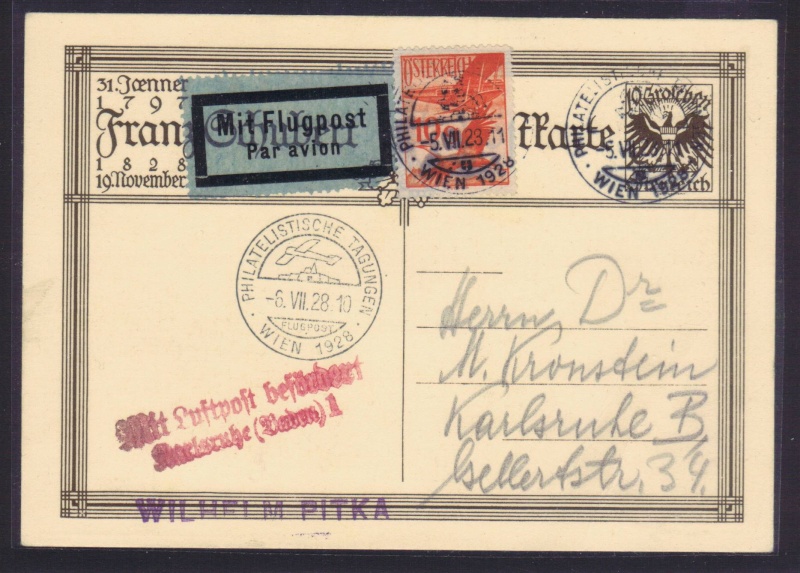 31. Jænner
1797
Franz Schubert Karte
1828
19. November
Mit Flugpost
Par avion
ÖSTERREICH
PHILATELISTISCHE
-5.VII.28.11
WIEN 1928
10 Groschen
PHILATELISTISCHE
5.VII
WIEN 1928
PHILATELISTISCHE TAGUNGEN
-6.VII.28.10
FLUGPOST
WIEN 1928
Mit Luftpost befördert
Karlsruhe (Baden) 1
Herrn Dr
M. Kronstein
Karlsruhe B
Gellertstr. 34.
WILHELM PITKA